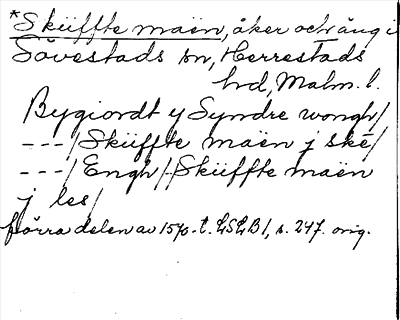 *Sküffte maën, åker och äng i
Sövestads sn, Herrestads
hrd, Malm. l.
Bygiordt y Syndre wongh/
---/Sküffte maën j ske/
---/Engh/-Sküffte maën
j les/
förra delen av 1570-t. LSLB 1, s. 247. orig.